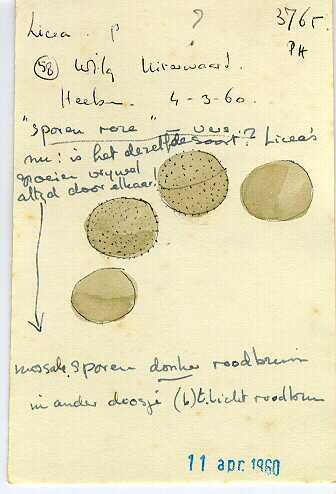 Licea . p ? 3765.
PH
(58) Wilg Uiterwaard.
4-3-60.
"Sporen roze" — vers
nu: is het dezelfde soort? Licea's
groeien vrijwel
altijd door elkaar!
massale sporen donker roodbruin
in ander doosje (b) t. licht roodbruin
11 apr. 1960